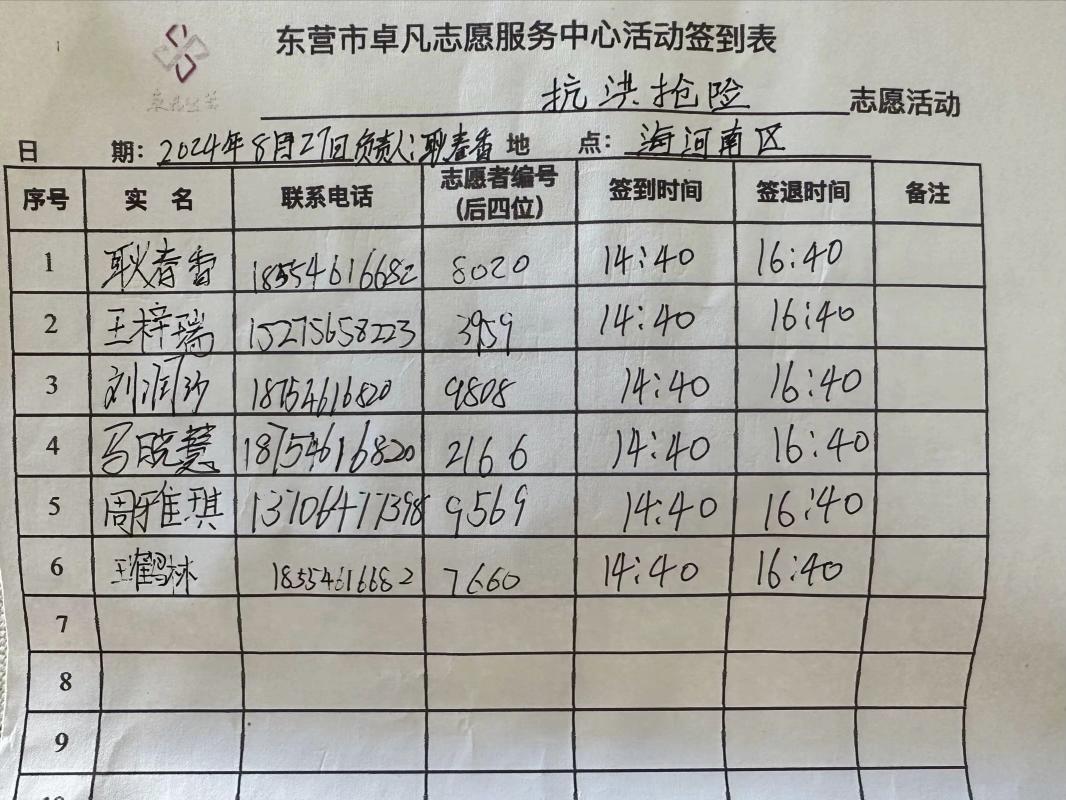 东营市卓凡志愿服务中心活动签到表
抗洪抢险 志愿活动
日 期: 2024年8月27日 负责人:耿春香 地 点: 海河南区
序号 实 名 联系电话 志愿者编号(后四位) 签到时间 签退时间 备注
1 耿春香 18554616682 8020 14:40 16:40
2 王梓瑞 15275658223 3959 14:40 16:40
3 刘润沙 18754616820 9808 14:40 16:40
4 马晓慧 18754616820 2166 14:40 16:40
5 周雅琪 13706477398 9569 14:40 16:40
6 王鹤林 18554616682 7660 14:40 16:40
7
8
9